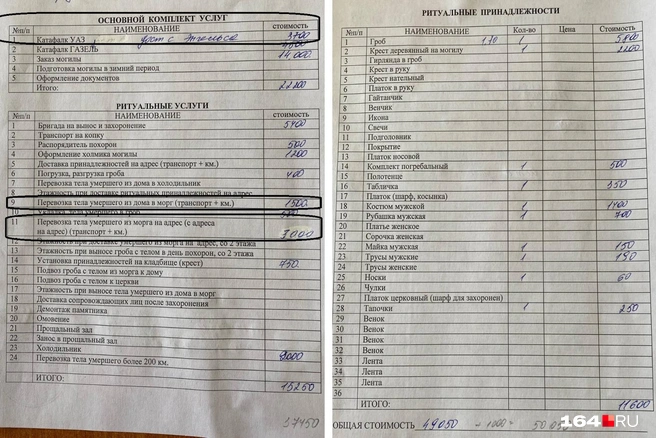 ОСНОВНОЙ КОМПЛЕКТ УСЛУГ
№п/п НАИМЕНОВАНИЕ стоимость
1 Катафалк УАЗ 3700
2 Катафалк ГАЗЕЛЬ
3 Заказ могилы 14000
4 Подготовка могилы в зимний период
5 Оформление документов
Итого: 22200
РИТУАЛЬНЫЕ УСЛУГИ
№п/п НАИМЕНОВАНИЕ стоимость
1 Бригада на вынос и захоронение
2 Транспорт на копку
3 Распорядитель похорон 500
4 Оформление холмика могилы 1200
5 Доставка принадлежностей на адрес (транспорт + км.)
6 Погрузка, разгрузка гроба 400
7 Перевозка тела умершего из дома в холодильник
8 Этажность при доставке ритуальных принадлежностей на адрес
9 Перевозка тела умершего из дома в морг (транспорт + км.) 1500
10 Укладка тела умершего в гроб
11 Перевозка тела умершего из морга на адрес (с адреса
на адрес) (транспорт + км.) 3000
12 Этажность при доставке умершего из морга на адрес, со 2 этажа
13 Этажность при выносе гроба с телом в день похорон, со 2 этажа
14 Установка принадлежностей на кладбище (крест) 750
15 Подвоз гроба с телом из морга к дому
16 Подвоз гроба с телом к церкви
17 Этажность при выносе умершего из дома в морг
18 Доставка сопровождающих лиц после захоронения
19 Демонтаж памятника
20 Омовение
21 Прощальный зал
22 Занос в прощальный зал
23 Холодильник
24 Перевозка тела умершего более 200 км.
ИТОГО: 15250
37450
РИТУАЛЬНЫЕ ПРИНАДЛЕЖНОСТИ
№п/п НАИМЕНОВАНИЕ Кол-во Цена стоимость
1 Гроб 190 1
2 Крест деревянный на могилу 1
3 Гирлянда в гроб
4 Крест в руку
5 Крест нательный
6 Платок в руку
7 Гайтанчик
8 Венчик
9 Икона
10 Свечи
11 Подголовник
12 Покрытие
13 Платок носовой
14 Комплект погребальный 1 500
15 Полотенце
16 Табличка 1 350
17 Платок (шарф, косынка)
18 Костюм мужской 1 1400
19 Рубашка мужская 1 700
20 Платье женское
21 Сорочка женская
22 Майка мужская 1 150
23 Трусы мужские 1 190
24 Трусы женские
25 Носки 1 60
26 Чулки
27 Платок церковный (шарф для захоронен)
28 Тапочки 1 250
29 Венок
30 Венок
31 Венок
32 Венок
33 Лента
34 Лента
35 Лента
36
ИТОГО: 11600
ОБЩАЯ СТОИМОСТЬ 49050 - 1000
164.RU